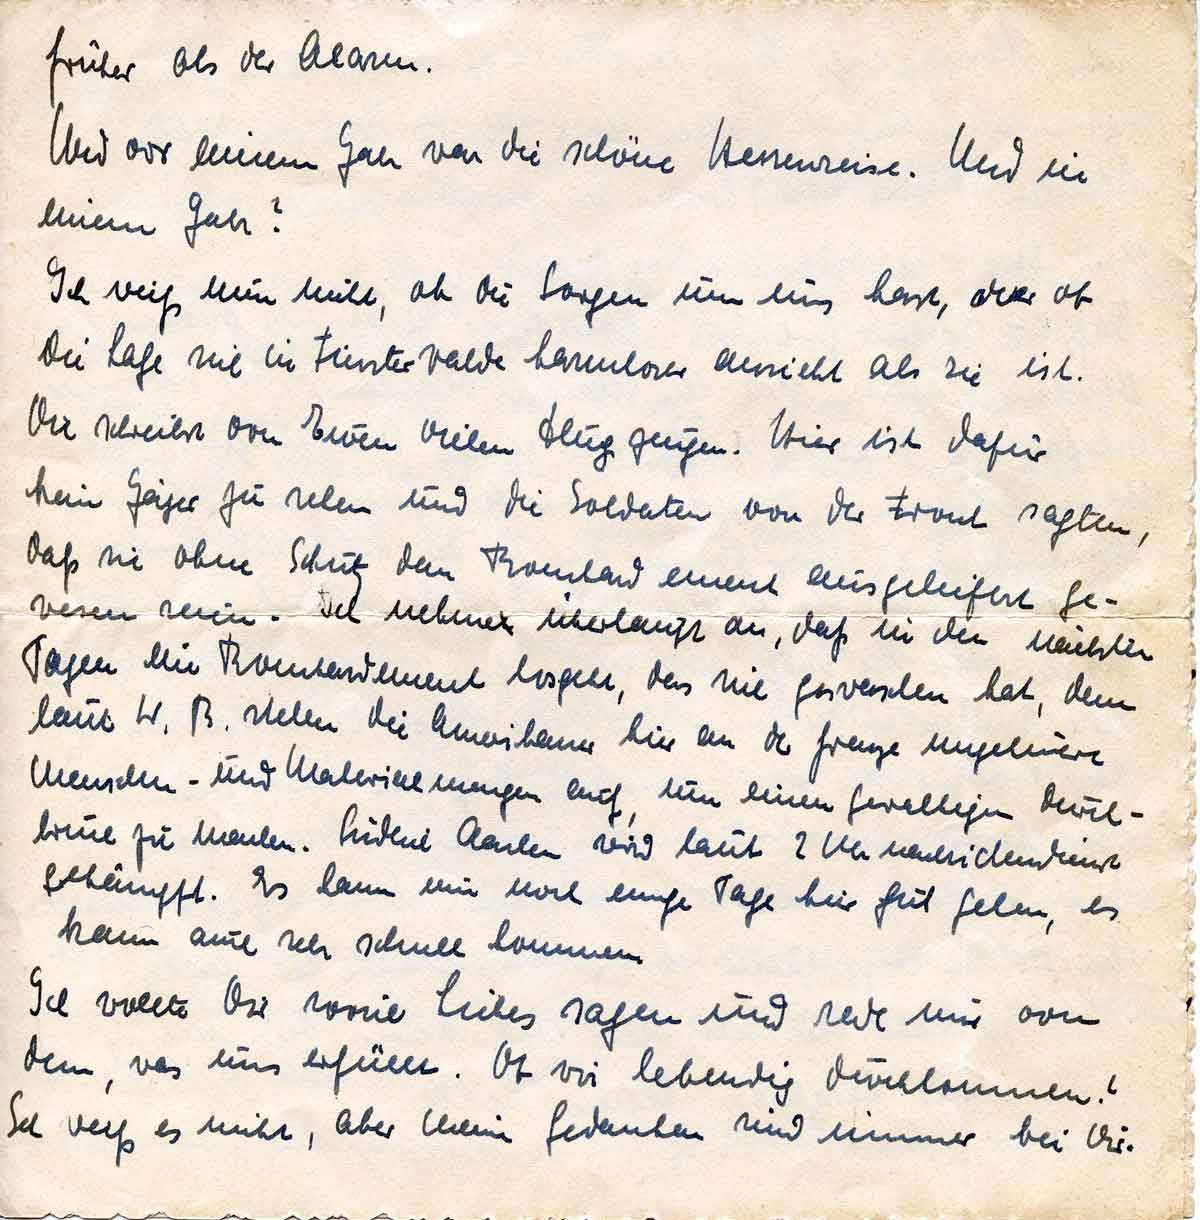 früher als der Alarm.
Und vor einem Jahr war die schöne Hessenreise. Und in
einem Jahr?
Ich weiß nun nicht, ob du Sorgen um uns hast, oder ob
die Lage sich in Finsterwalde harmloser ansieht als sie ist.
Du schreibst von Euren vielen Flugzeugen. Hier ist dafür
kein Jäger zu sehen und die Soldaten von der Front sagten,
daß sie ohne Schutz dem Bombardement ausgeliefert ge-
wesen seien. Ich nehme überhaupt an, daß in den nächsten
Tagen ein Bombardement losgeht, das sich gewaschen hat, denn
laut W. B. stellen die Amerikaner hier an der Grenze ungeheure
Menschen- und Materialmengen auf, um einen gewaltigen Durch-
bruch zu machen. Südlich Aachen wird laut 2 Uhr Nachrichtendienst
gekämpft. Es kann nun noch einige Tage hier gut gehen, es
kann auch sehr schnell kommen
Ich wollte Dir soviel Liebes sagen und rede nur von
dem, was uns erfüllt. Ob wir lebendig durchkommen?
Ich weiß es nicht, aber meine Gedanken sind immer bei Dir.